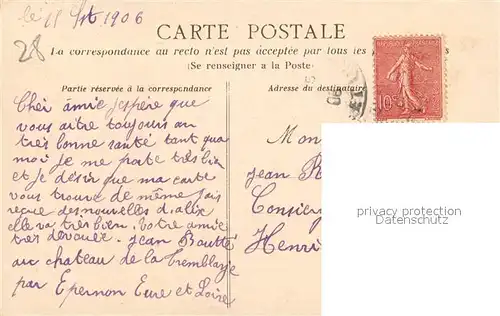 le 11 Spt 1906
28
CARTE POSTALE
La correspondance au recto n'est pas acceptée par tous les
(Se renseigner a la Poste)
Partie réservée à la correspondance
Adresse du destinataire
RÉPUBLIQUE FRANÇAISE
10
Cher amie jespère que
vous aitre toujours an
très bonne santé tant qua
moi je me porte très bien
et je désir que ma carte
vous trouve de même jais
reçue des nouvelles d'alix
elle va très bien. Votre amie
très dévouer. Jean Bautté
au chateau de la tremblaye
par Epernon Eure et Loire
Mon
Jean
Consier
Henri
privacy protection
Datenschutz